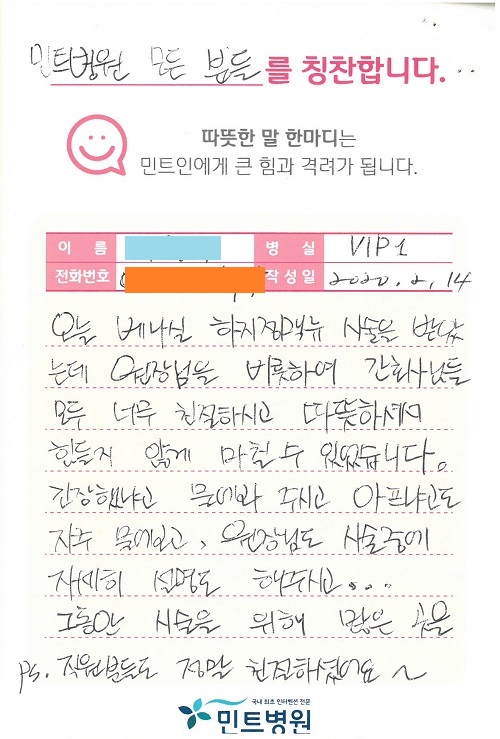 민트병원 모든 분들 를 칭찬합니다...
따뜻한 말 한마디는
민트인에게 큰 힘과 격려가 됩니다.
이 름 병 실 VIP1
전화번호 작성일 2020.2.14
오늘 베나실 하지정맥류 시술을 받았
는데 원장님을 비롯하여 간호사님들
모두 너무 친절하시고 따뜻하셔서
힘들지 않게 마칠 수 있었습니다.
긴장했냐고 물어봐 주시고 아프냐고도
자주 물어보고, 원장님도 시술중에
자세히 설명도 해주시고...
그동안 시술을 위해 많은 곳을
ps. 직원분들도 정말 친절하셨어요 ~
국내 최초 인터벤션 전문
민트병원